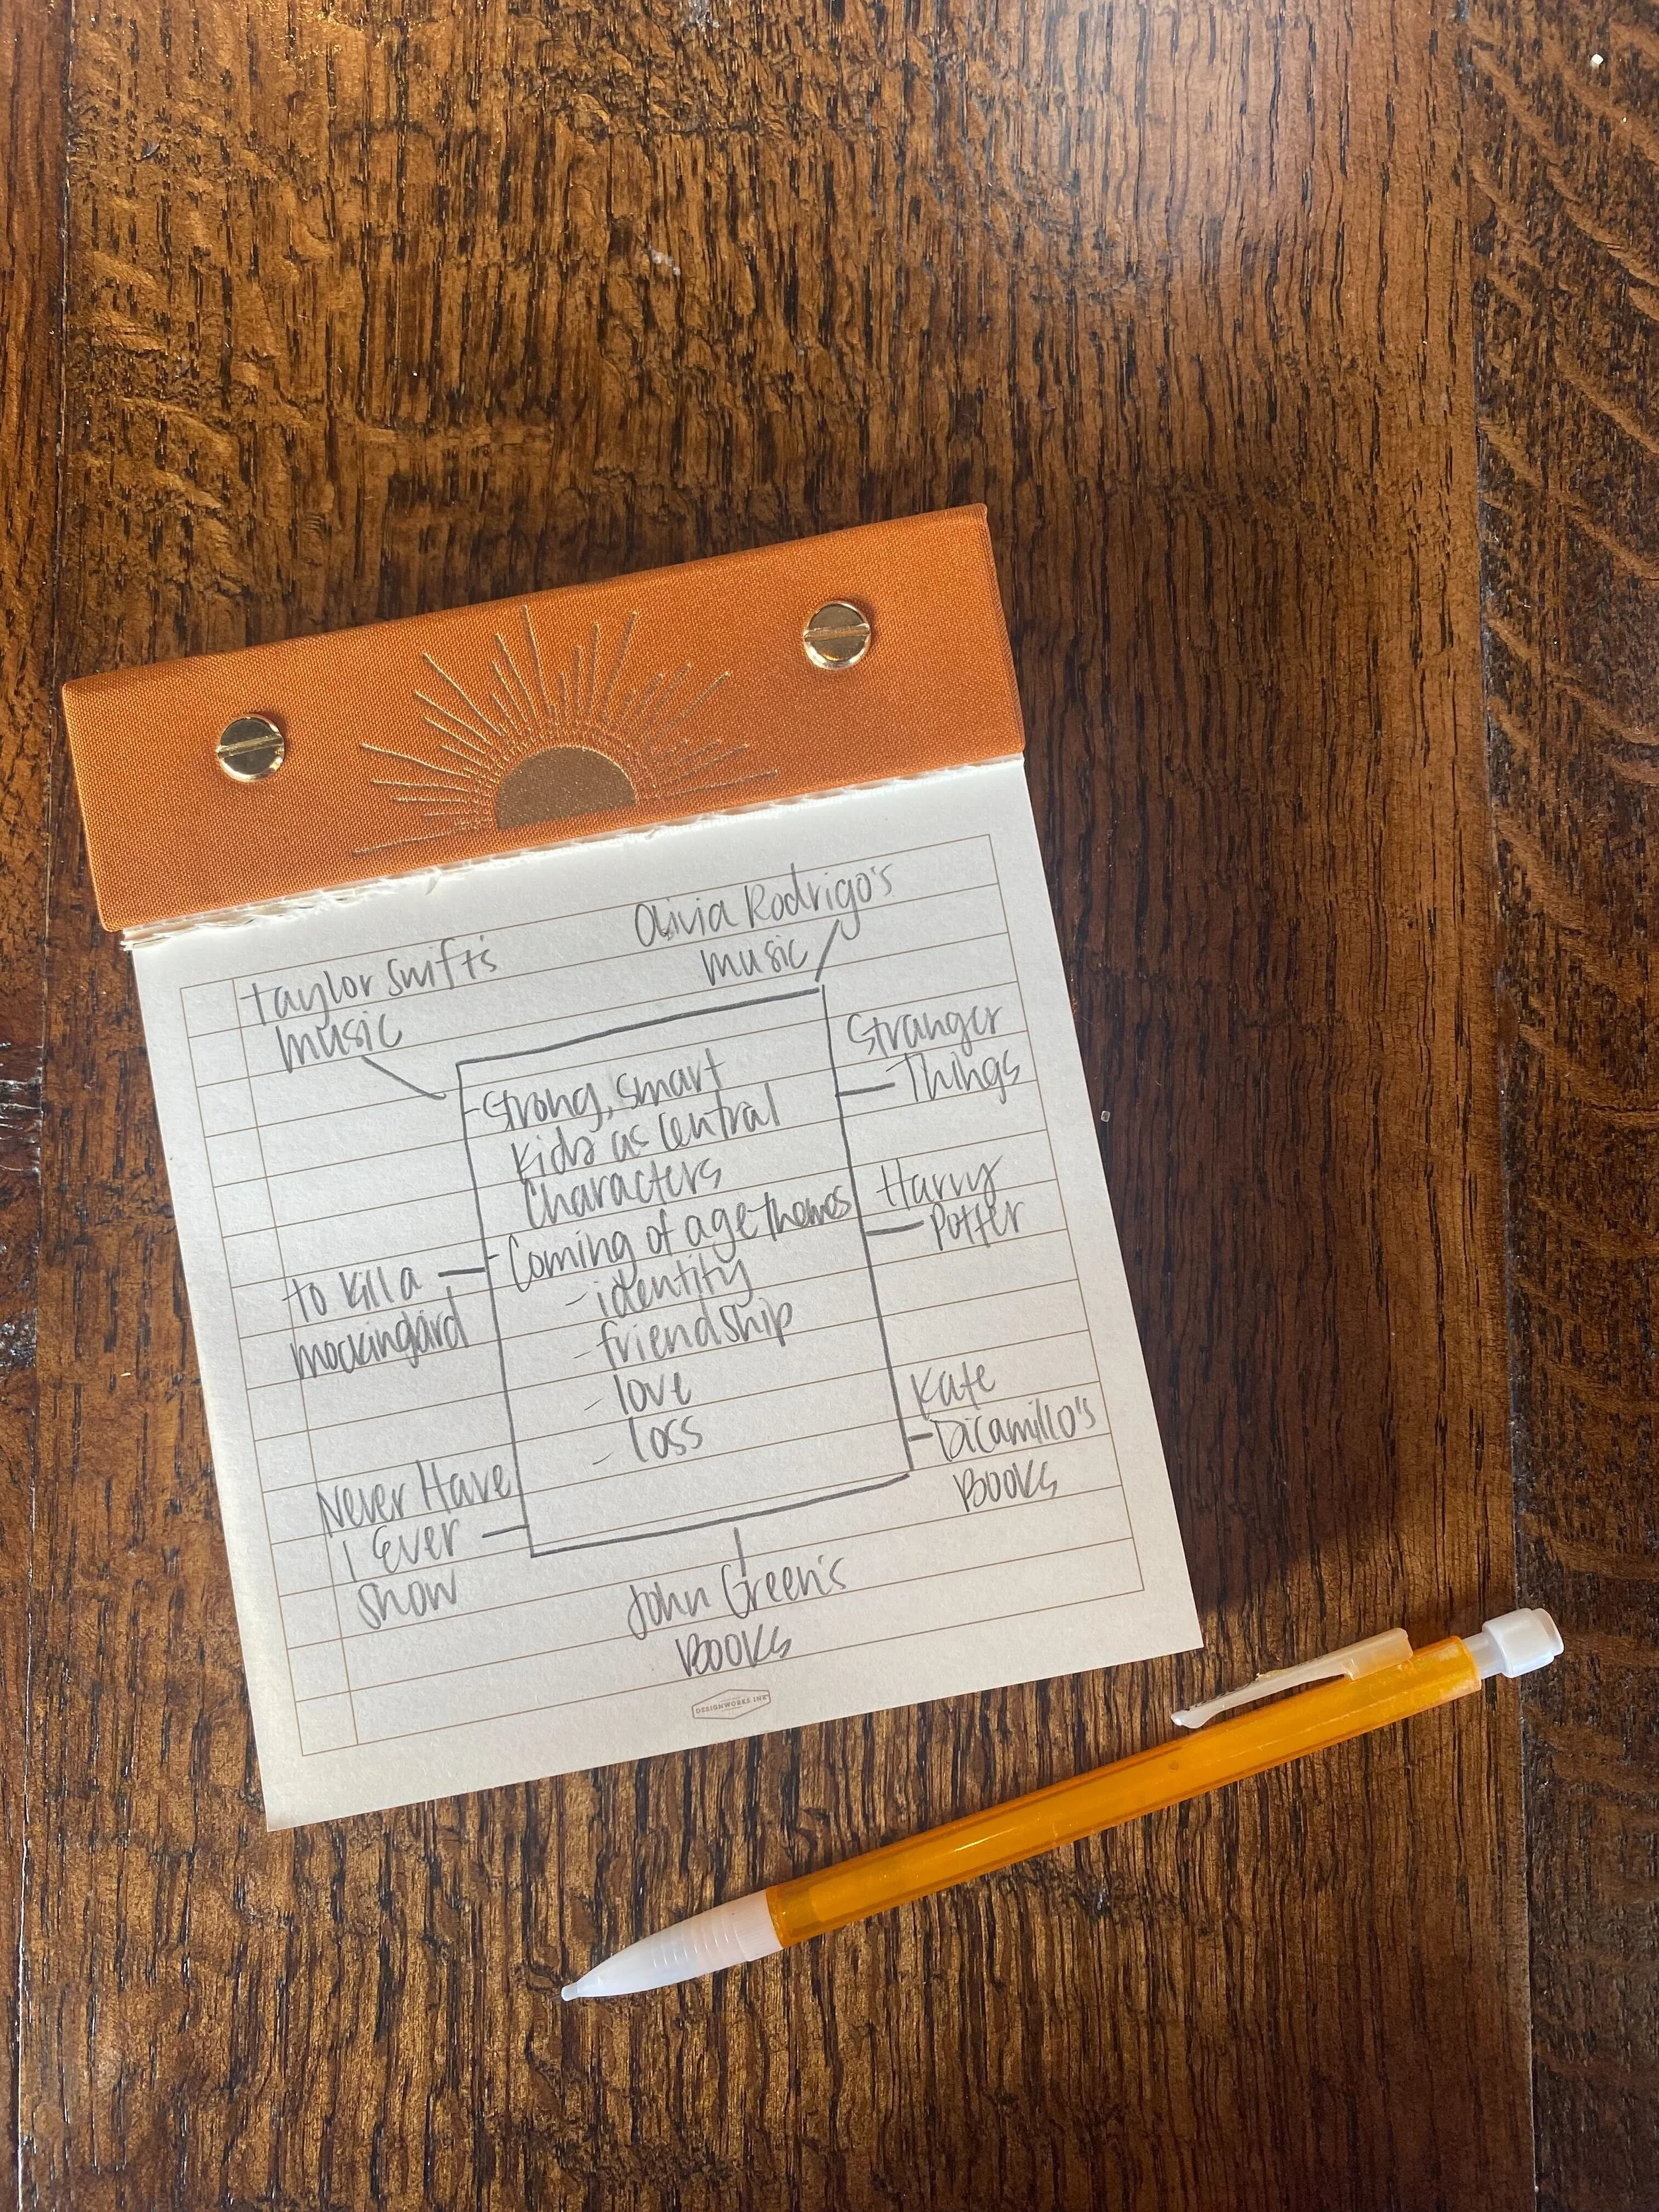 Olivia Rodrigo's
music
Taylor Swift's
music
Stranger
Things
-Strong, smart
kids as central
characters
-Coming of age themes
-identity
-friendship
-love
-loss
Harry
Potter
to kill a
mockingbird
Kate
DiCamillo's
Books
Never Have
I Ever
show
John Green's
Books
DESIGNWORKS INK